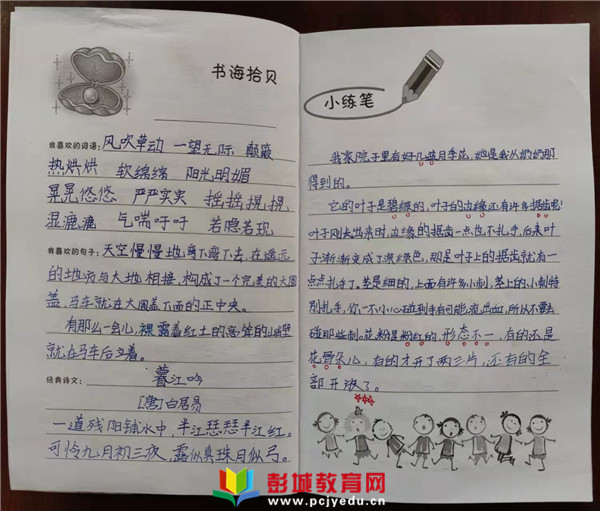 书海拾贝
我喜欢的词语：风吹草动 一望无际 颠簸
热烘烘 软绵绵 阳光明媚
晃晃悠悠 严严实实 摇摇晃晃
湿漉漉 气喘吁吁 若隐若现
我喜欢的句子：天空慢慢地弯下弯下去，在遥远
的地方与大地相接，构成了一个完美的大圆
盖，马车就在大圆盖下面的正中央。
有那么一会儿，裸露着红土的高耸的山崖壁
就在马车后立着。
经典诗文：暮江吟
[唐]白居易
一道残阳铺水中，半江瑟瑟半江红。
可怜九月初三夜，露似真珠月似弓。
小练笔
我家院子里有好几盆月季花，她是我从奶奶那
得到的。
它的叶子是碧绿的，叶子的边缘还有许多锯齿呢！
叶子刚长出来时，边缘的锯齿一点也不扎手，后来叶
子渐渐变成了深绿色，那是叶子上的锯齿就有一
点点扎手了。茎是细的，上面有许多小刺，茎上的小刺特
别扎手，你一不小心碰到手有可能流出血，所以不要去
碰那些刺。花粉是粉红的，形态不一，有的还是
花骨朵儿，有的才开了两三片，还有的全
部开放了。
彭城教育网
www.pcjyedu.cn